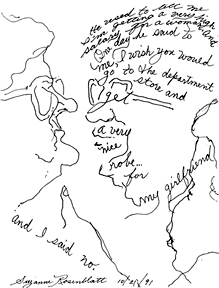 He used to tell me
I'm getting a very
so easy for a woman and
One day he said to
me, I wish you would
go to the department
store and
get
a very
nice
robe...
for
my girlfriend
and I said no
Suzanne Rosenblatt 10/2/91